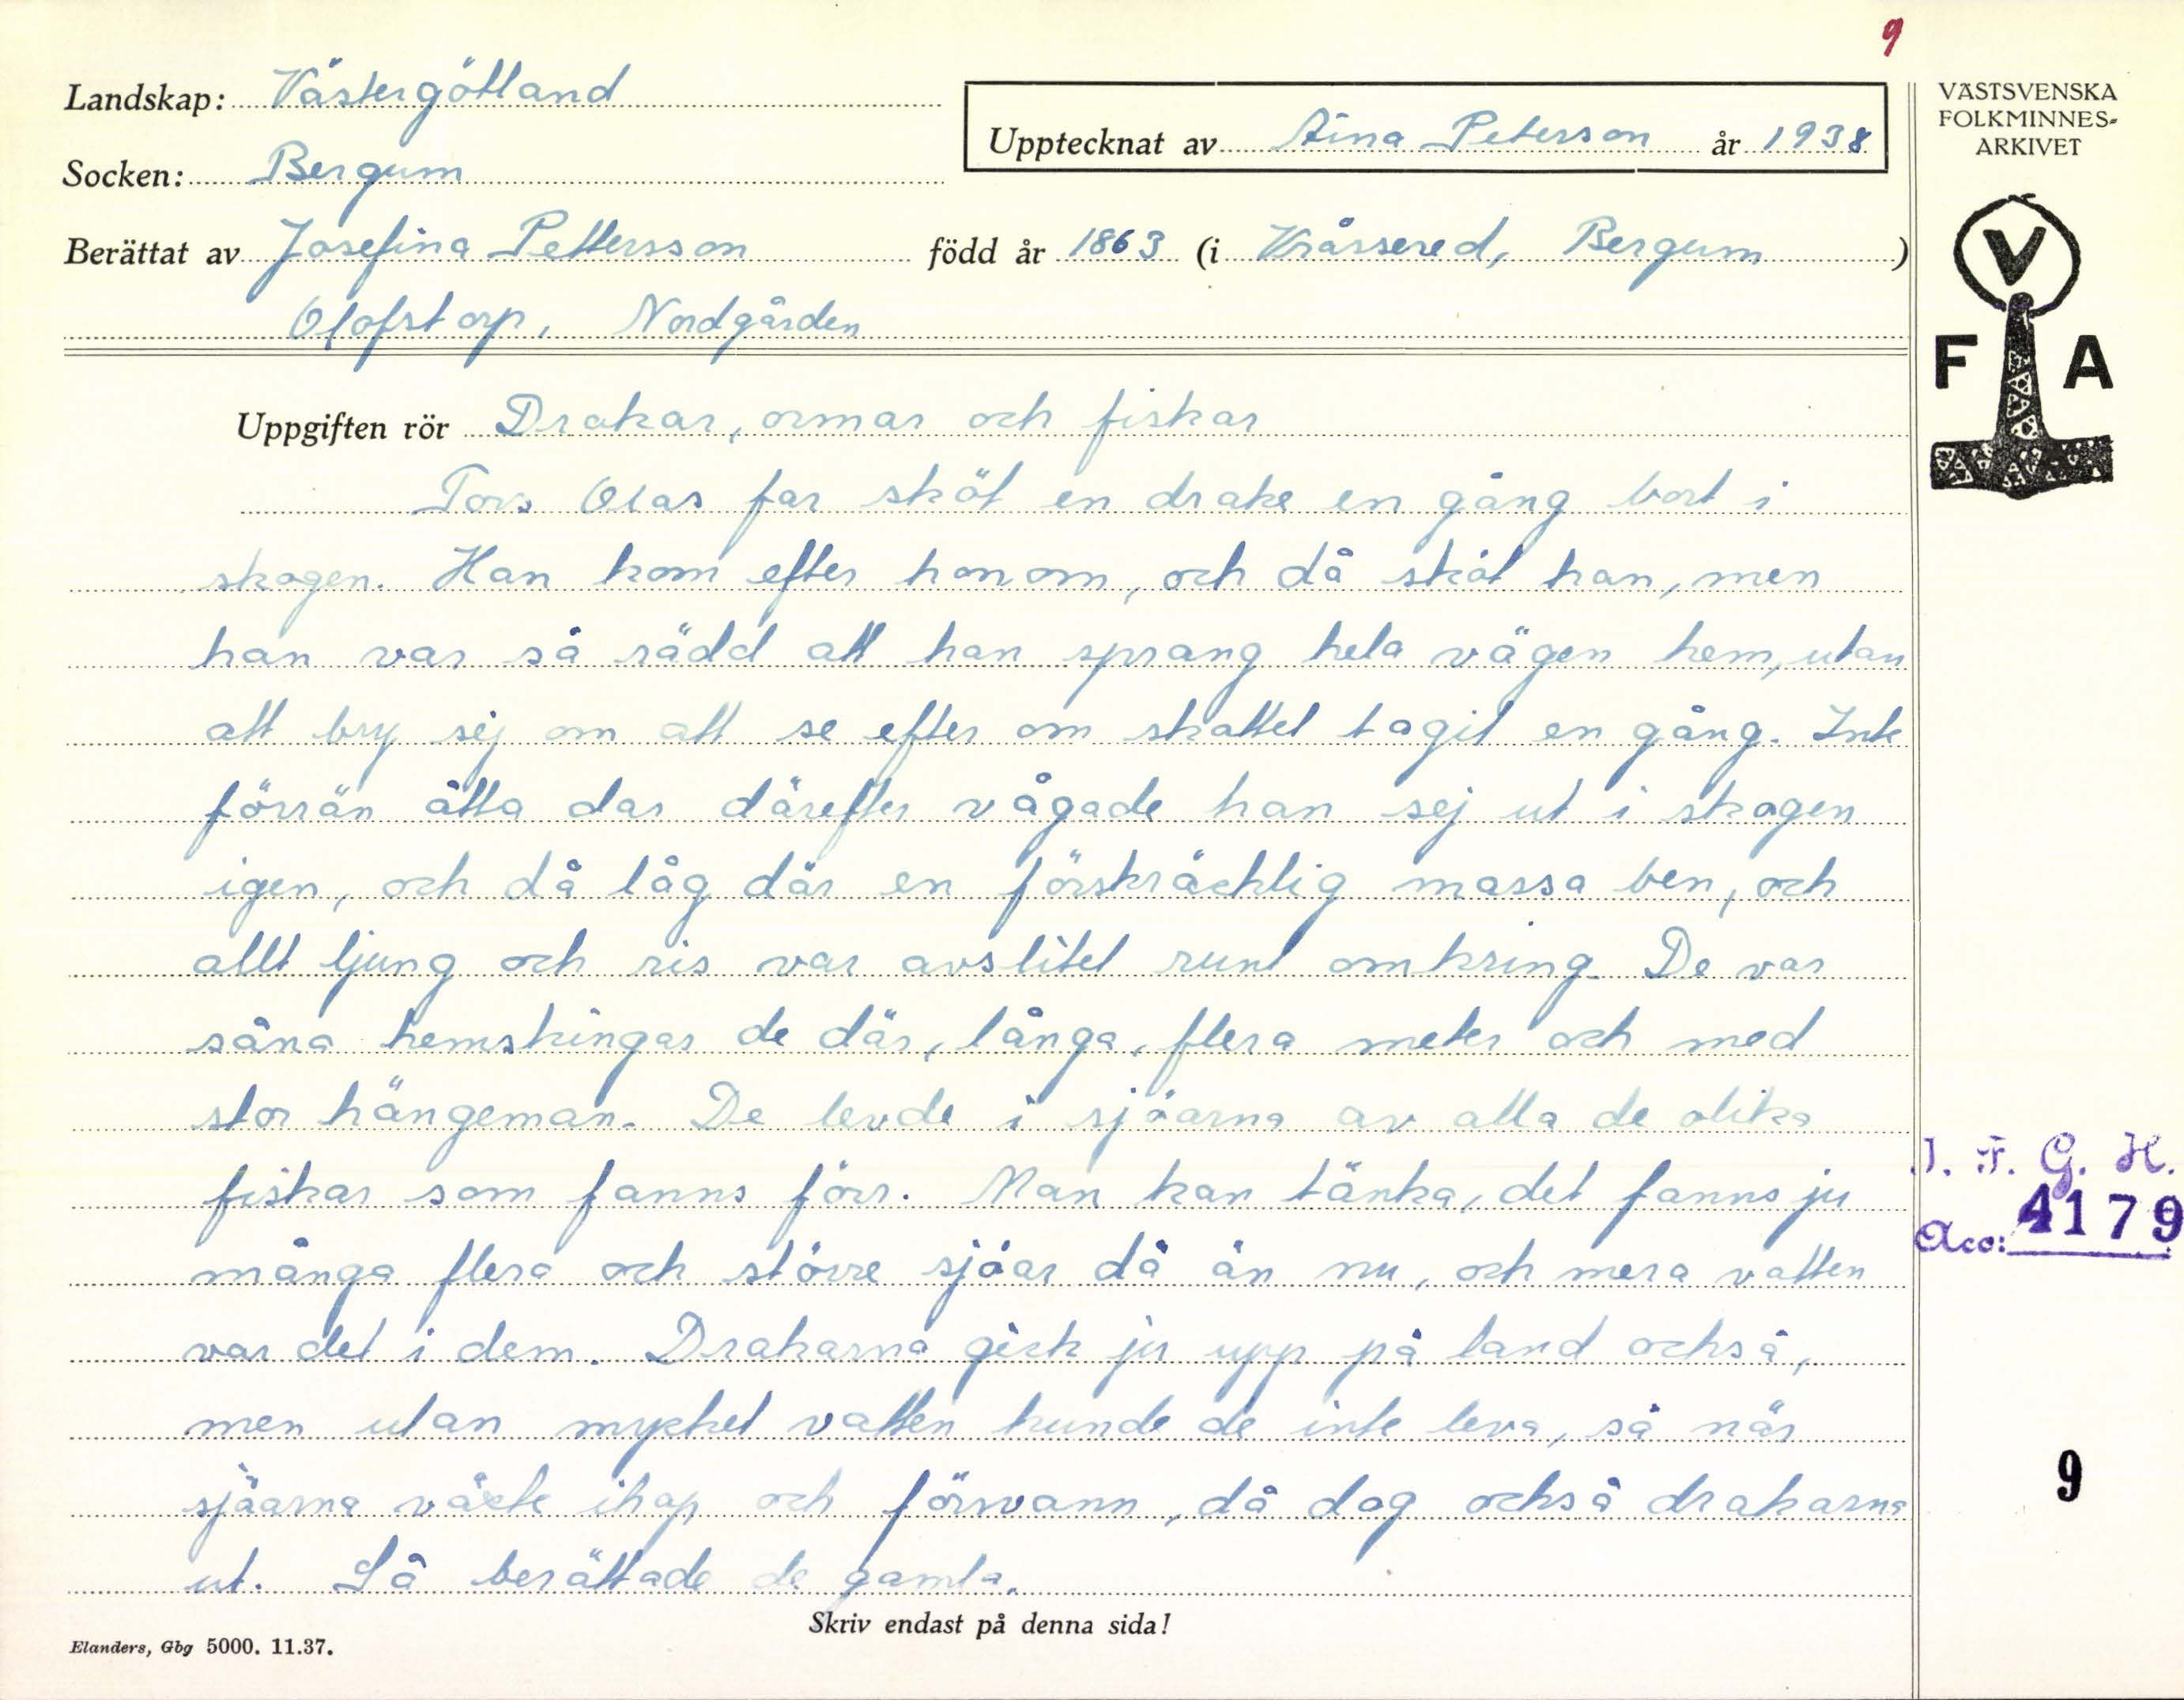 9
Landskap: Västergötland
Socken: Bergum
Upptecknat av Aina Peterson år 1938
Berättat av Josefina Pettersson född år 1863 (i Kråssered, Bergum)
Olofstorp, Nordgården
VÄSTSVENSKA
FOLKMINNES-
ARKIVET
V
F A
Uppgiften rör Drakar, ormar och fiskar
Tors Olas far sköt en drake en gång bort i
skogen. Han kom efter honom, och då sköt han, men
han var så rädd att han sprang hela vägen hem, utan
att bry sej om att se efter om skottet tagit en gång. Inte
förrän åtta dar därefter vågade han sej ut i skogen
igen, och då låg där en förskräcklig massa ben, och
allt ljung och ris var avslitet runt omkring. De var
såna hemskingar de där, långa, flera meter och med
stor hängeman. De levde i sjöarna av alla de olika
fiskar som fanns förr. Man kan tänka, det fanns ju
många flera och större sjöar då än nu, och mera vatten
var det i dem. Drakarna gick ju upp på land också,
men utan mycket vatten kunde de inte leva, så när
sjöarna växte ihop och försvann, då dog också drakarna
ut. Så berättade de gamla.
I. F. G. H.
Acc: 4179
9
Skriv endast på denna sida!
Elanders, Gbg 5000. 11.37.